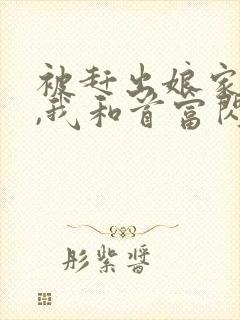 被赶出娘家
,我和首富闪
彤紫酱